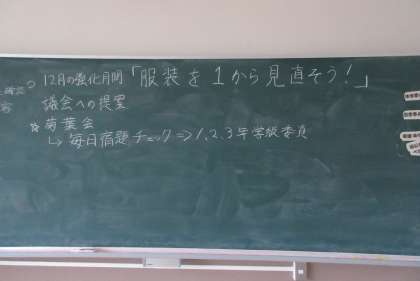 ○ 12月の強化月間「服装を1から見直そう!」
議会への提案
☆ 菊葉会
↳ 毎日宿題チェック⇒1,2,3年学級委員